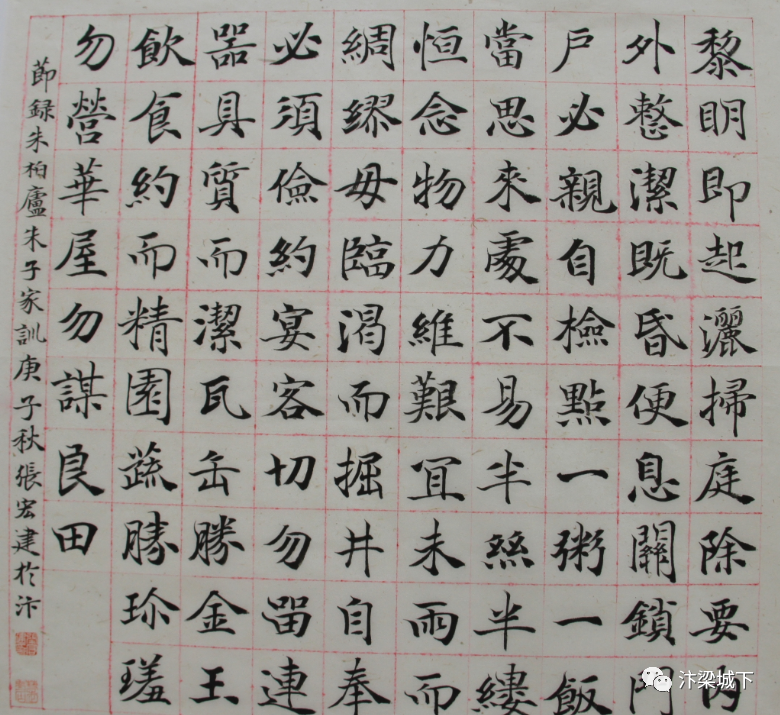 黎眀即起灑掃庭除要內
外整潔既昏便息關鎖門
戶必親自檢點一粥一飯
當思來處不易半絲半縷
恒念物力維艱宜未雨而
綢繆毋臨渴而掘井自奉
必須儉約宴客切勿留連
器具質而潔瓦缶勝金玉
飲食約而精園蔬勝珍
勿營華屋勿謀良田
節録朱柏廬朱子家訓庚子秋張宏建於汴
汴梁城下